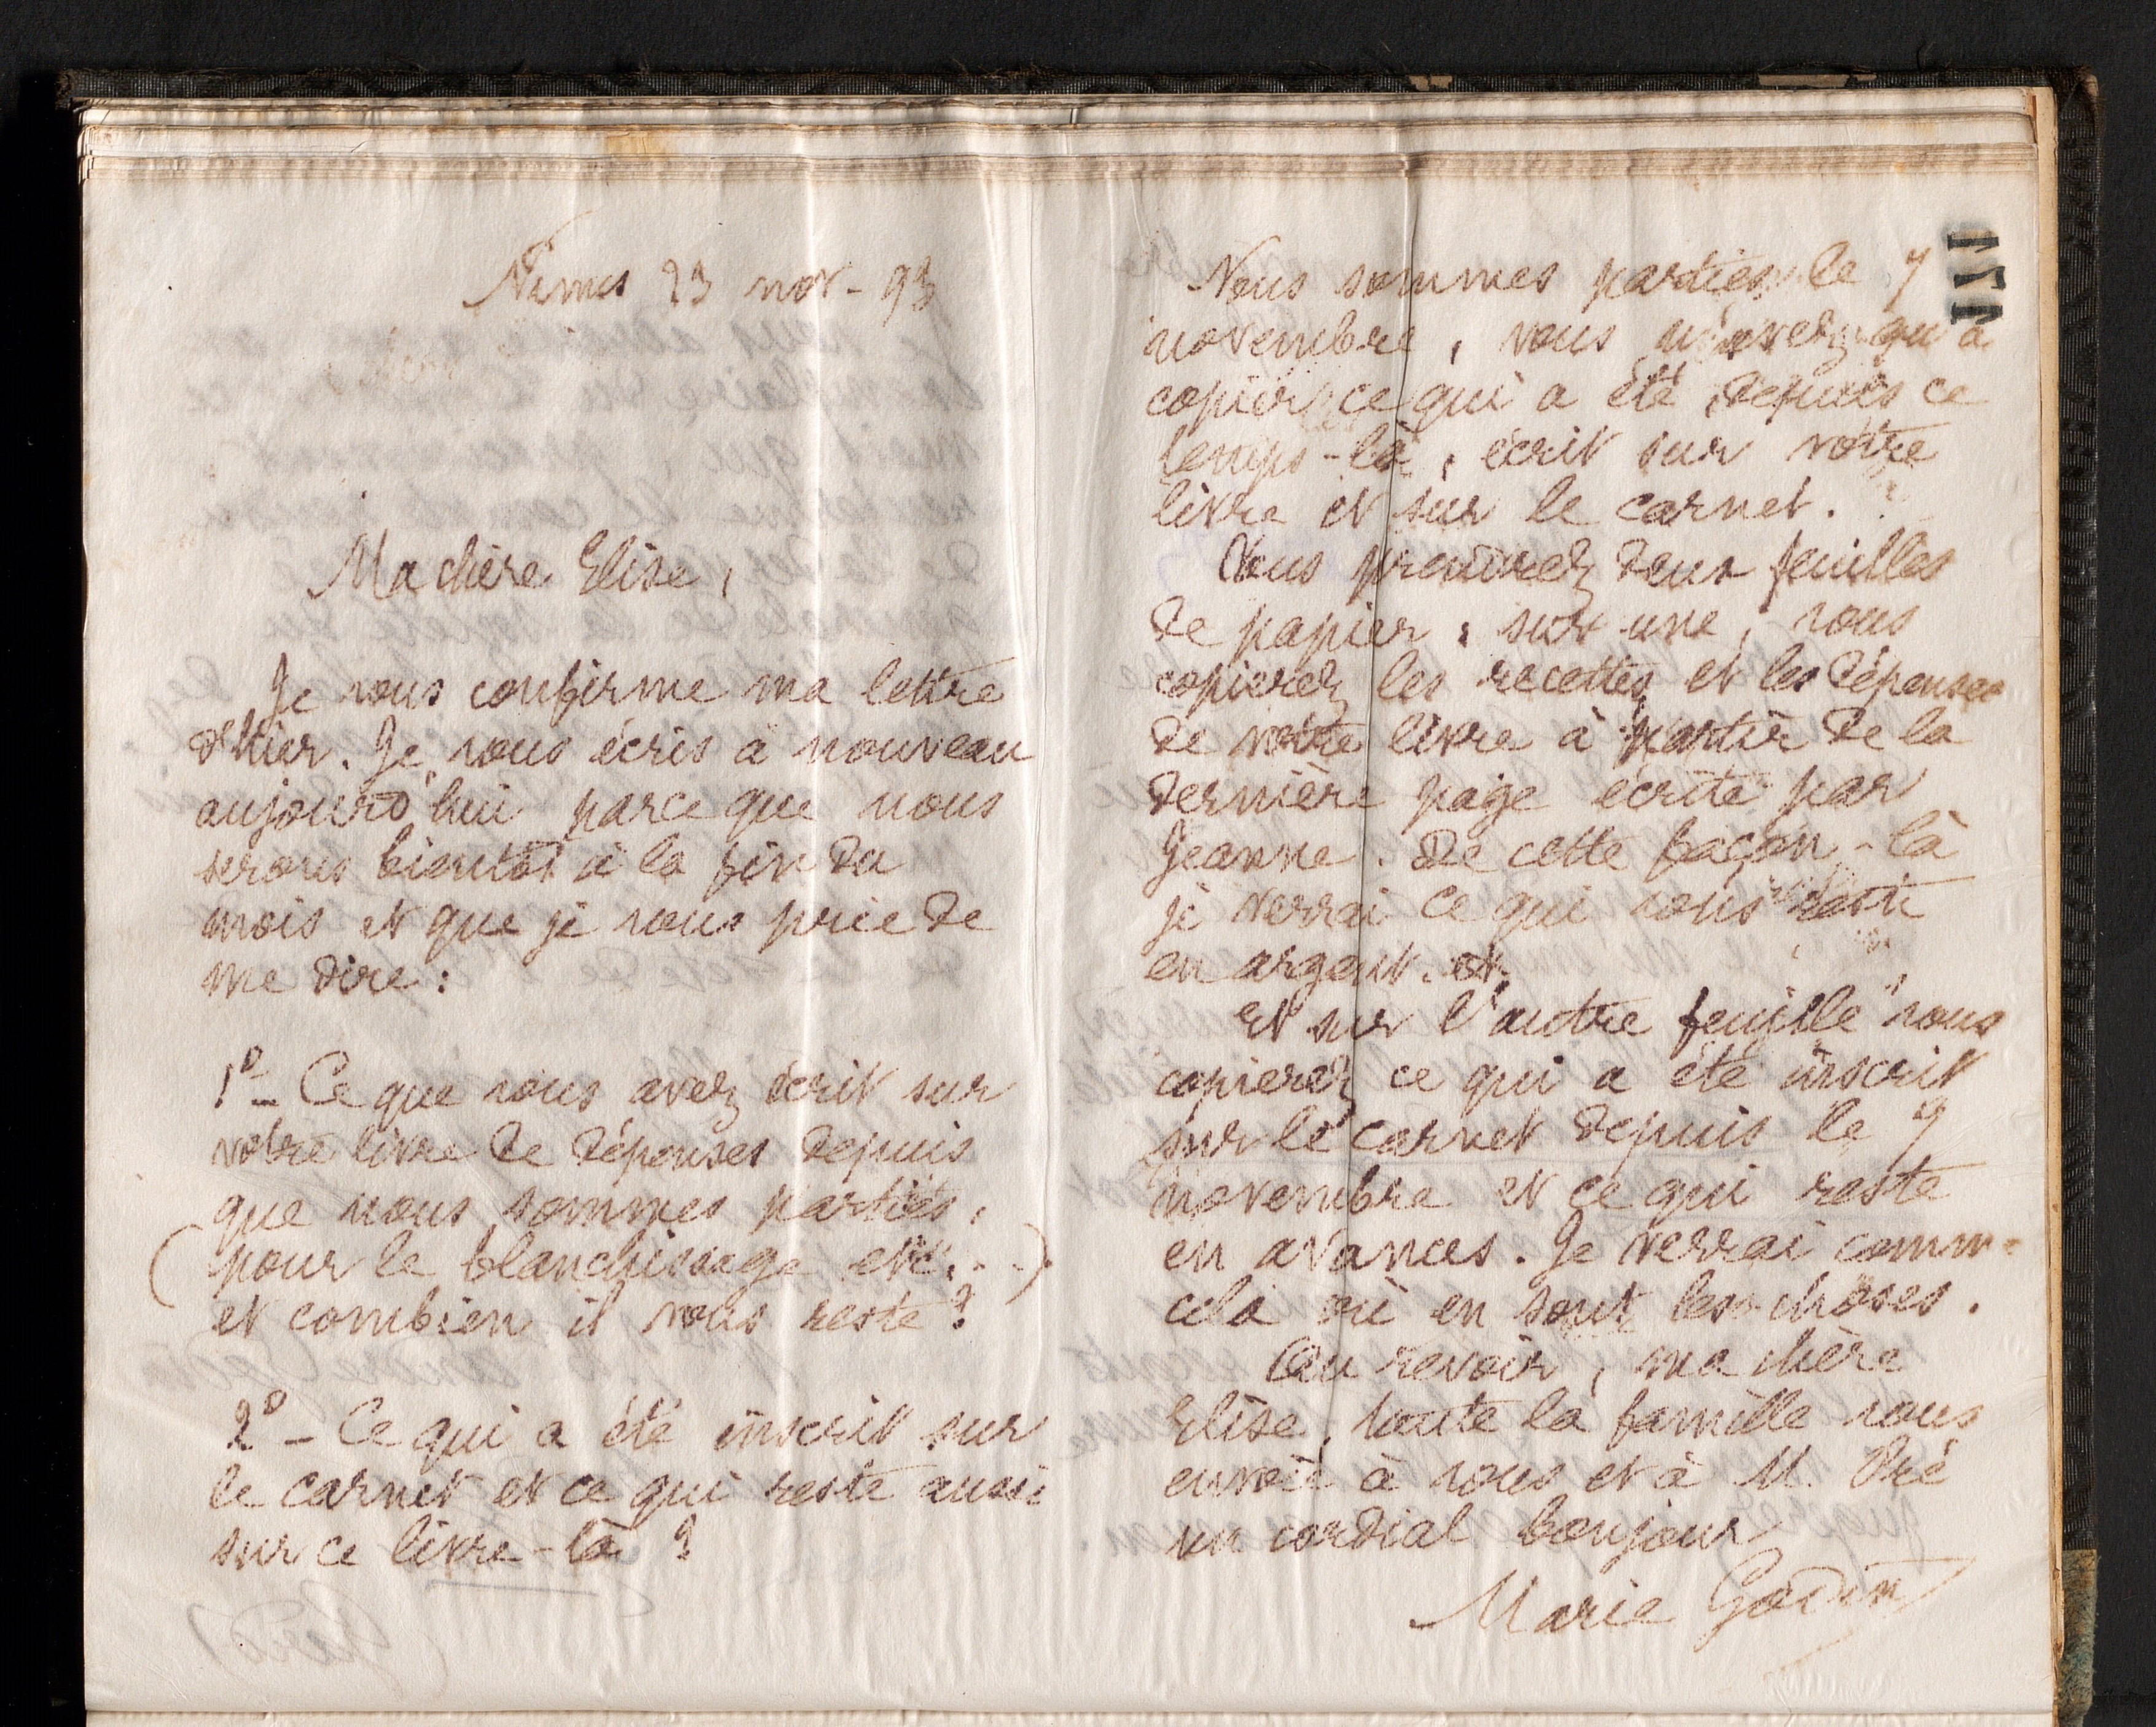 Nimes 23 nov - 93
Ma chère Elise,
Je vous confirme ma lettre
d'hier. Je vous écris à nouveau
aujourd'hui parce que nous
serons bientôt à la fin du
mois et que je vous prie de
me dire :
1º - Ce que vous avez écrit sur
votre livre de dépenses depuis
que nous sommes parties,
(pour le blanchissage etc. - -)
et combien il vous reste ?
2º - Ce qui a été inscrit sur
le carnet et ce qui reste aussi
sur ce livre-là ?
111
Nous sommes parties le 7
novembre, vous n'avez qu'à
copier ce qui a été, depuis ce
temps-là, écrit sur votre
livre et sur le carnet.
Vous prendrez deux feuilles
de papier : sur une, vous
copierez les recettes et les dépenses
de votre livre à partir de la
dernière page écrite par
Jeanne. De cette façon-là
je verrai ce qui vous reste
en argent. et
Et sur l'autre feuille vous
copierez ce qui a été inscrit
sur le carnet depuis le 7
novembre et ce qui reste
en avances. Je verrai comm-
cela où en sont les choses.
Au revoir, ma chère
Elise, toute la famille vous
envoie à vous et à M. Pré
un cordial bonjour
Marie Godin